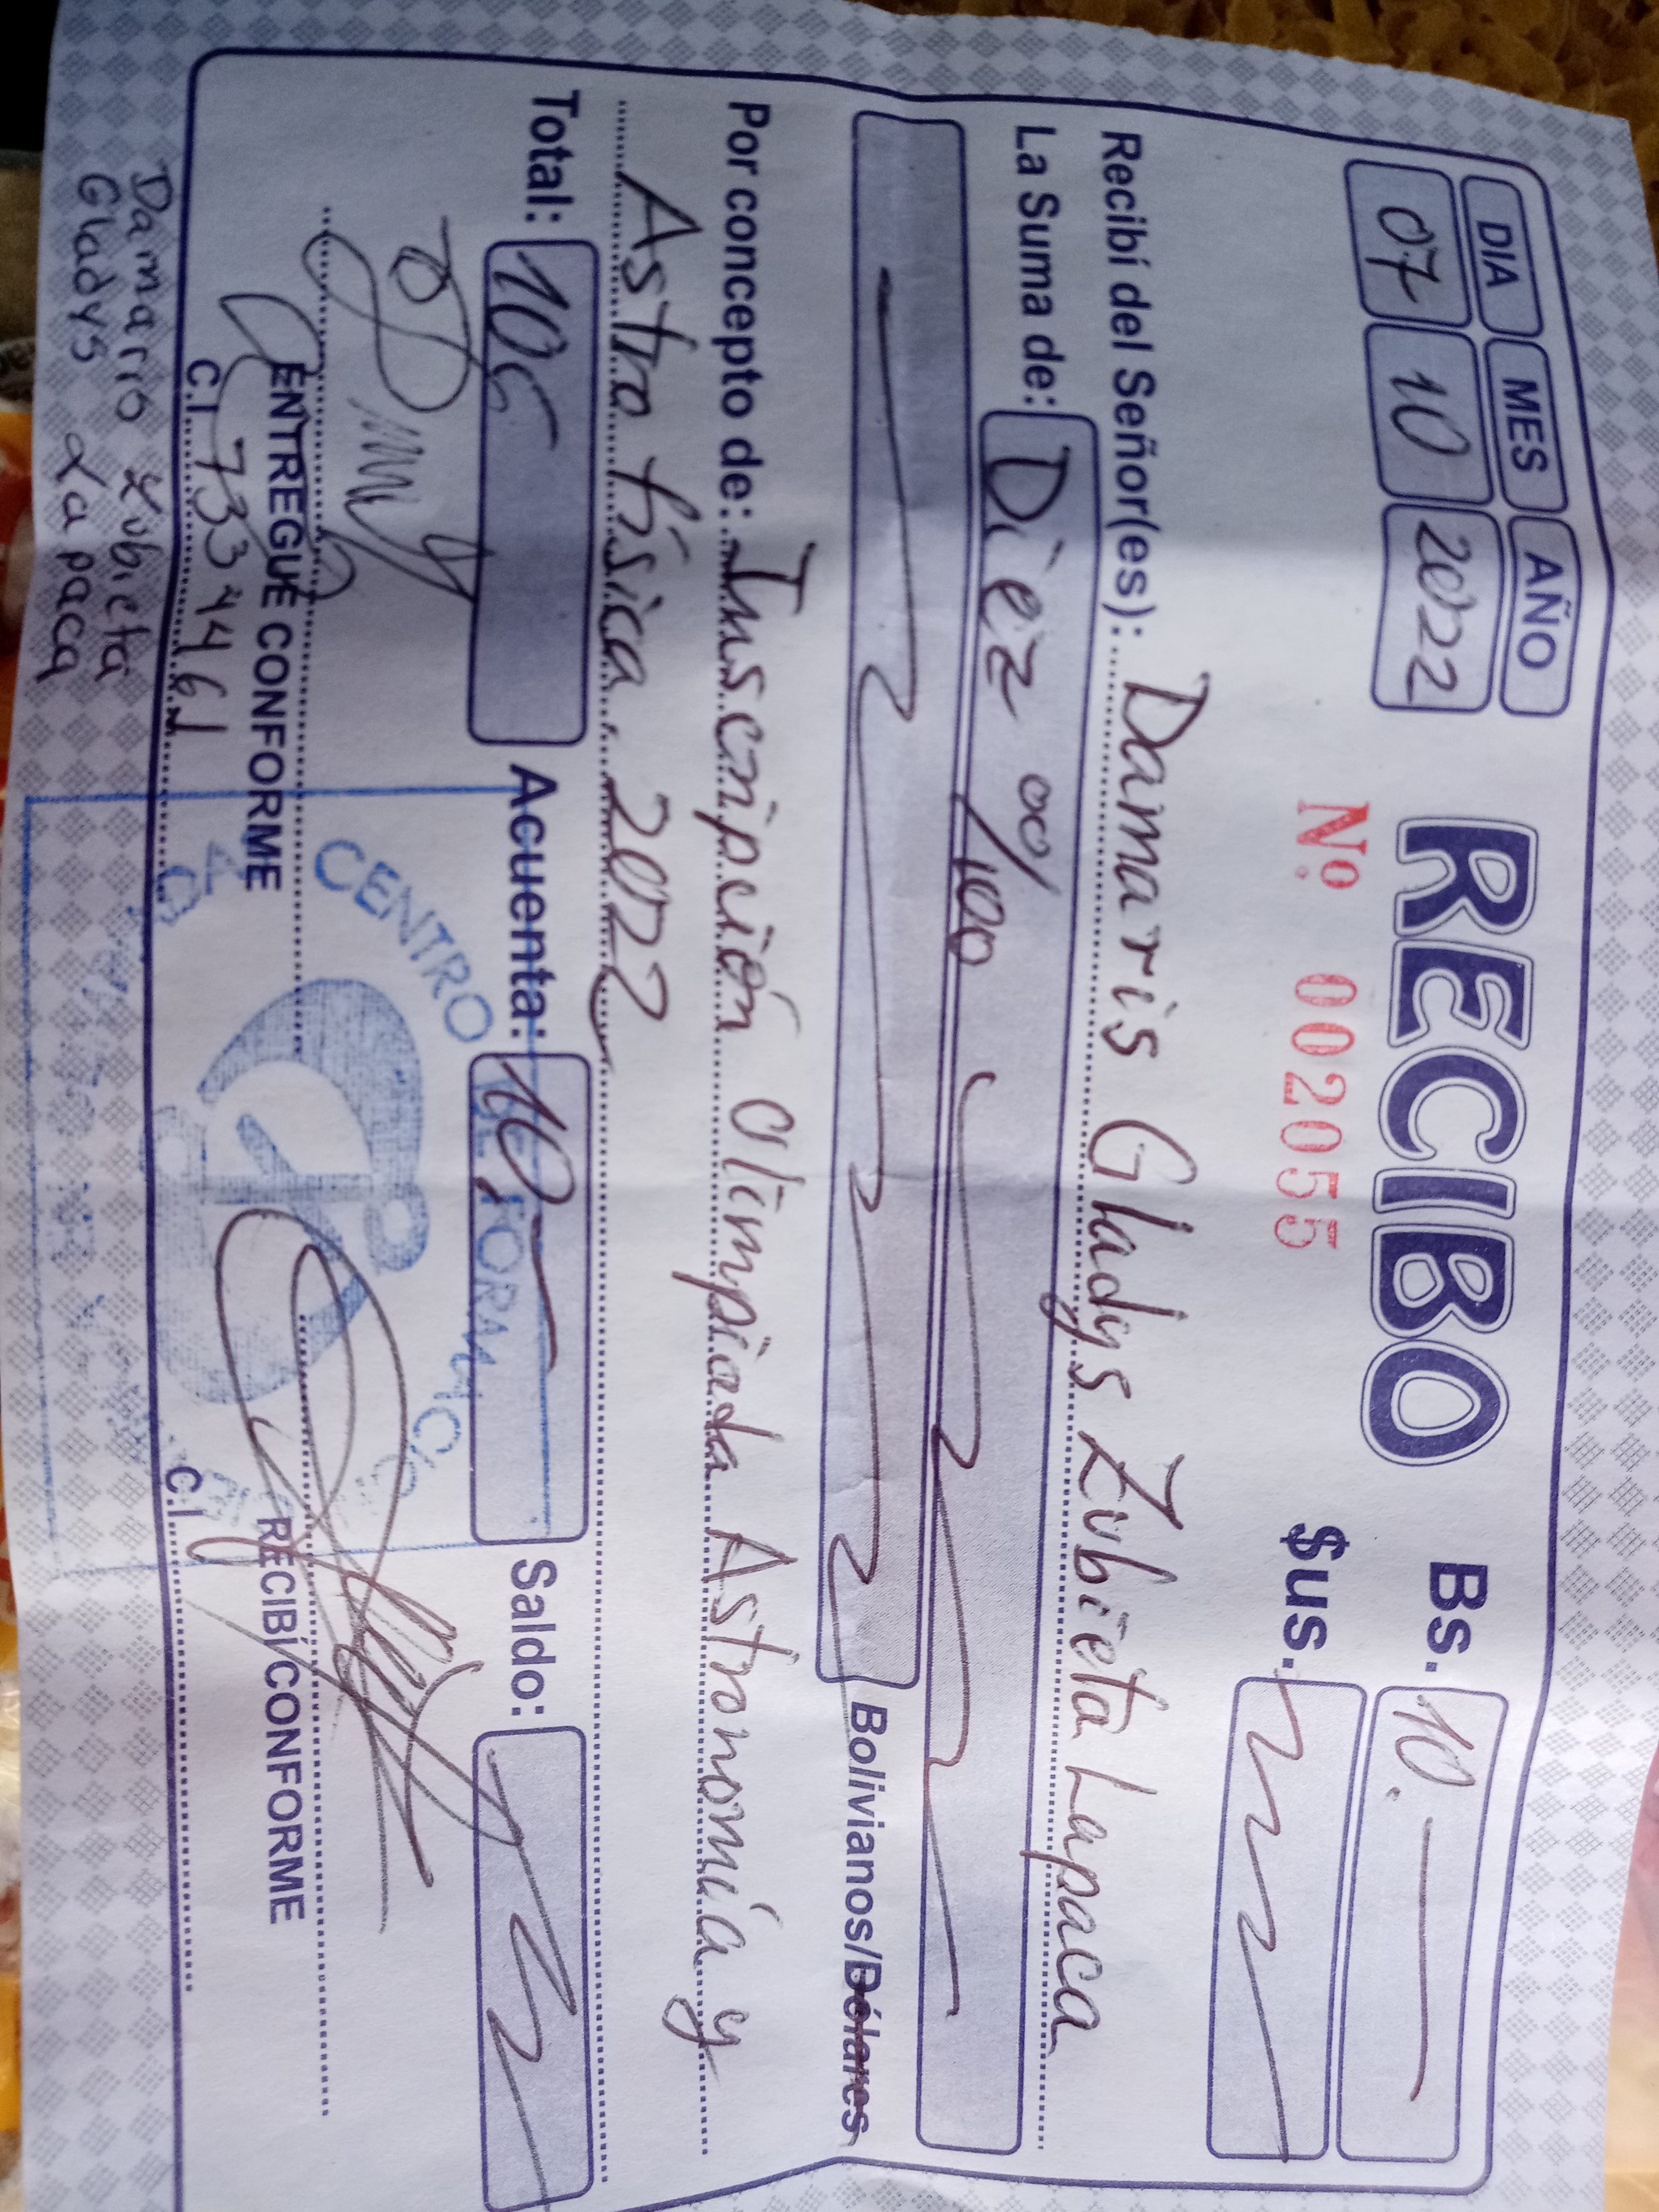 DIA MES AÑO
07 10 2022
RECIBO
Nº 002055
Bs. 10.-
$us.
Recibí del Señor(es): Damaris Gladys Zubieta Lapaca
La Suma de: Diez 00/100
Bolivianos/Dólares
Por concepto de: Inscripción Olimpiada Astronomía y
Astro física 2022
Total: 10 Acuenta: 10.- Saldo:
CENTRO DE FORMACIO
ENTREGUE CONFORME RECIBÍ CONFORME
C.I. 7334461 C.I.
Damaris Zubieta
Gladys Lapaca